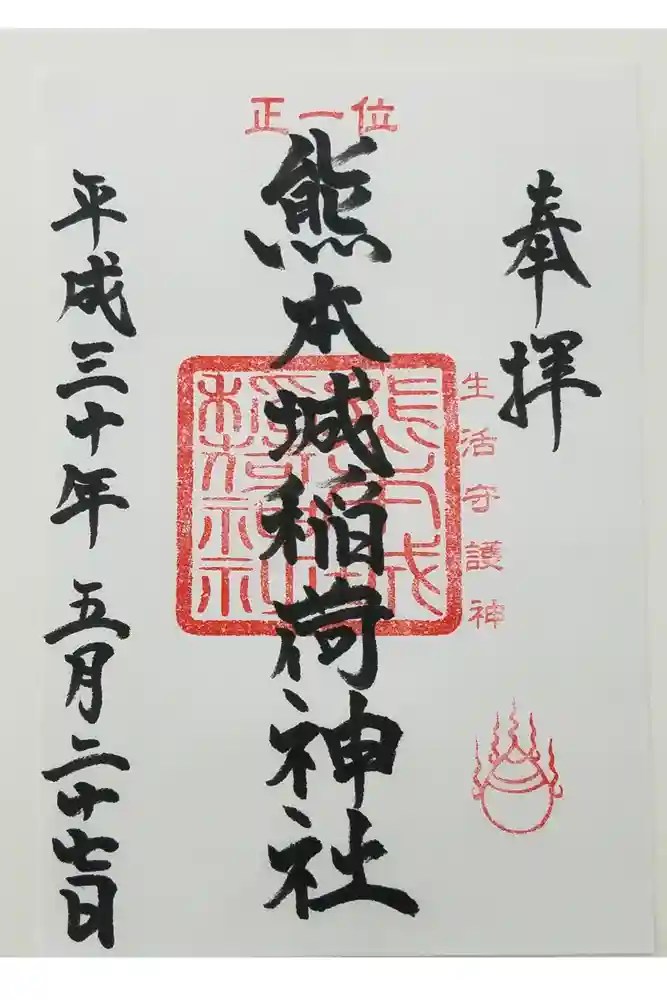 奉拝
生活守護神
正一位
熊本城稲荷神社
平成三十年 五月二十七日